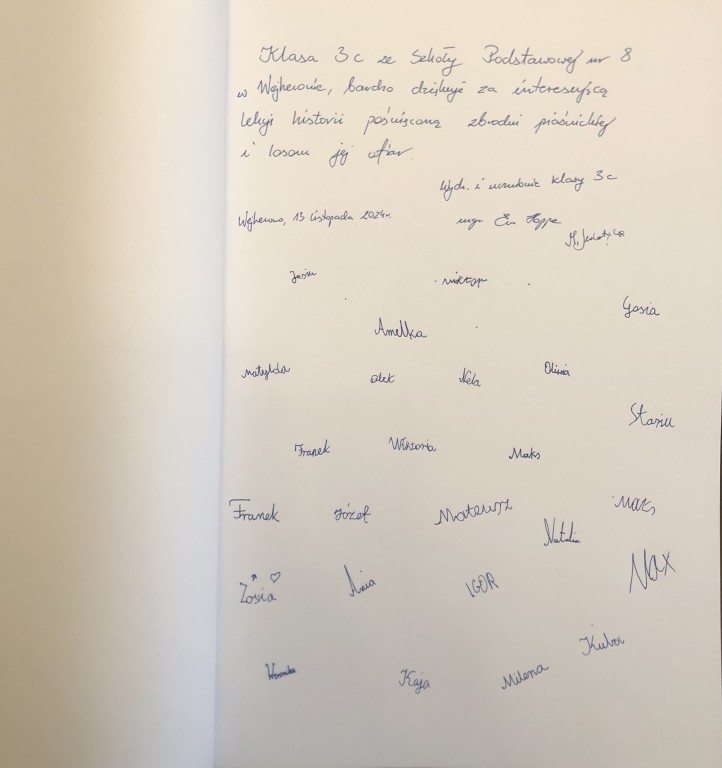 Klasa 3c ze Szkoły Podstawowej nr 8
w Wejherowie, bardzo dziękuje za interesującą
lekcję historii poświęconą zbrodni piaśnickiej
i losom jej ofiar.
Wych. i uczniowie klasy 3c
Wejherowo, 13 listopada 2024r.
mgr Ewa Hoppe
Jasiu
Wiktor
Gosia
Amelka
Matylda
Olek
Nela
Oliwia
Stasiu
Franek
Wiktoria
Maks
Franek
Józef
Mateusz
Maks
Natalia
Zosia
Ania
IGOR
Max
Weronika
Kaja
Milena
Kuba